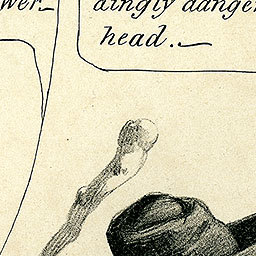 wer-
dingly danger
head.-